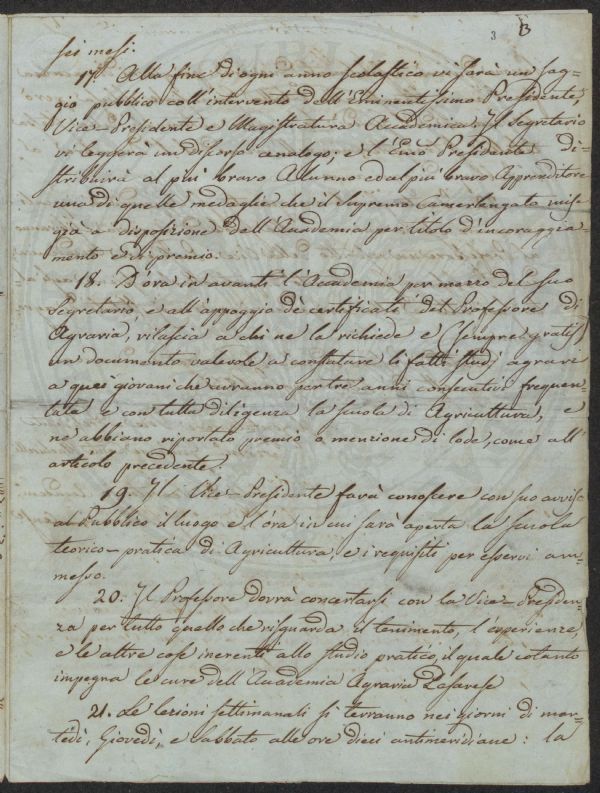 3 B
sei mesi.
17. Alla fine di ogni anno scolastico vi sarà un sag=
gio pubblico coll'intervento dell'Eminentissimo Presidente,
Vice-Presidente e Magistratura Accademica. Il Segretario
vi leggerà un discorso analogo; e l'Emo Presidente di=
stribuirà al più bravo Alunno ed al più bravo Apprenditore
una di quelle medaglie che il Supremo Camerlengato mise
già a disposizione dell'Accademia per titolo d'incoraggia=
mento e di premio.
18. D'ora in avanti l'Accademia per mezzo del suo
Segretario, e all'appoggio de certificati del Professore di
Agraria, rilascia a chi ne la richiede e (sempre gratis)
un documento valevole a constatare li fatti studj agrarj
a quei giovani che avranno per tre anni consecutivi frequen=
tata e con tutta diligenza la scuola di Agricultura, e
ne abbiano riportato premio o menzione di lode, come all'
articolo precedente.
19. Il Vice-Presidente farà conoscere con suo avviso
al Pubblico il luogo e l'ora in cui sarà aperta la scuola
teorico-pratica di Agricultura, e i requisiti per esservi am=
messo.
20. Il Professore dovrà concertarsi con la Vice-Presiden=
za per tutto quello che risguarda il tenimento, l'esperienze,
e le altre cose inerenti allo studio pratico, il quale cotanto
impegna le cure dell'Accademia Agraria Pesarese
21. Le lezioni settimanali si terranno nei giorni di mar=
tedì, Giovedì, e Sabbato alle ore dieci antimeridiane: la